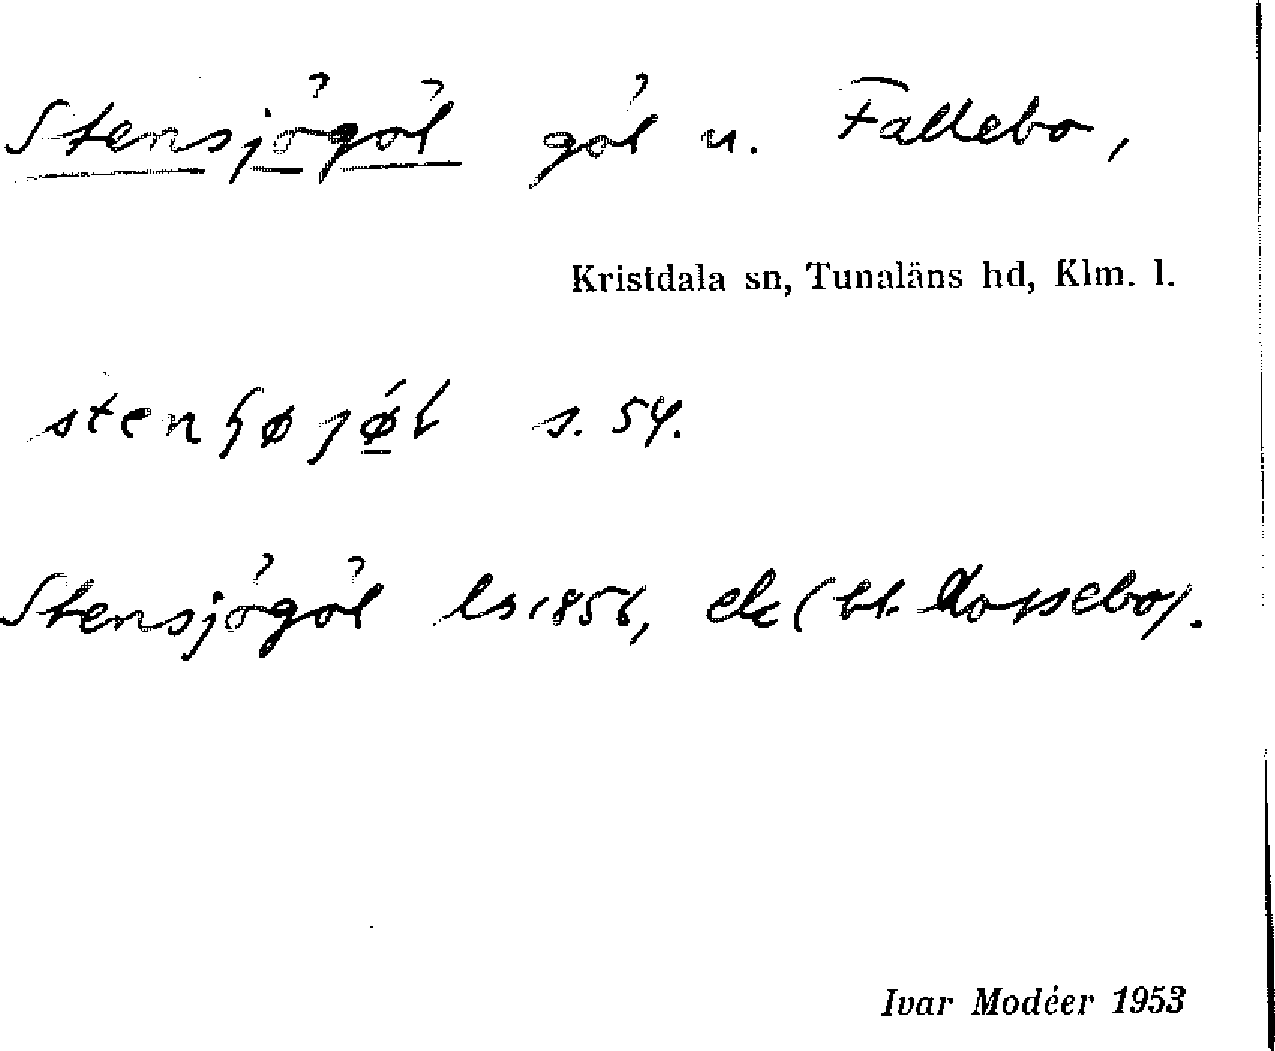 Stensjögöl göl u. Fallebo,
Kristdala sn, Tunaläns hd, Klm. l.
s. 54.
Stensjögöl ls 1856, ek (bl. Kossebo).
Ivar Modéer 1953